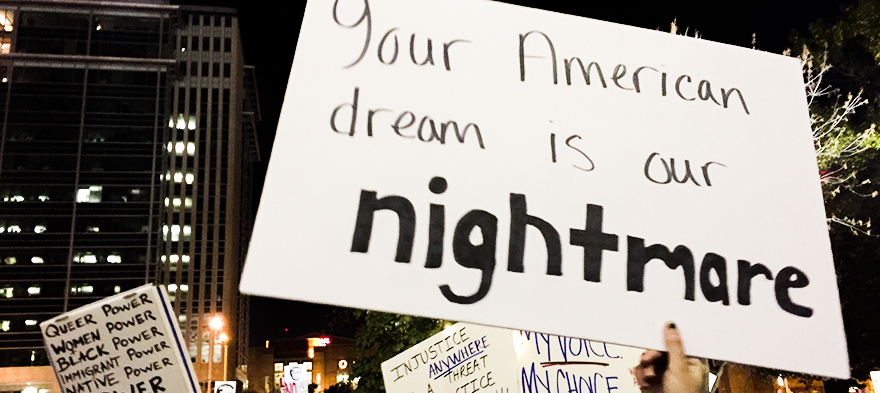 Your American
dream is our
nightmare
QUEER POWER
WOMEN POWER
BLACK POWER
IMMIGRANT POWER
NATIVE POWER
INJUSTICE
ANYWHERE
A THREAT
MY VOICE
MY CHOICE